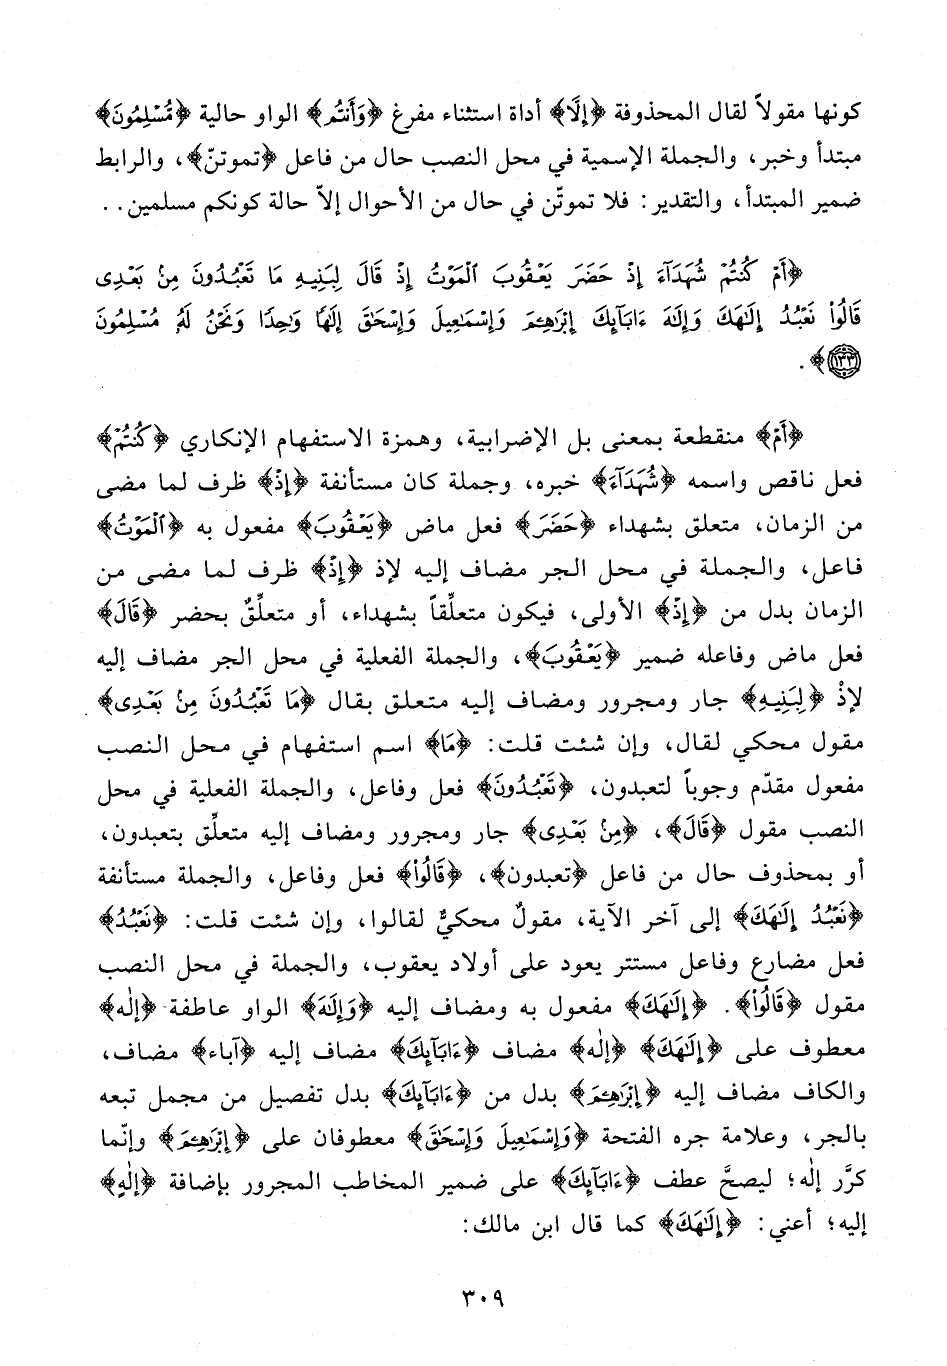 كونها مقولاً لقال المحذوفة ﴿إِلَّا﴾ أداة استثناء مفرغ ﴿وَأَنتُم﴾ الواو حالية ﴿مُّسْلِمُونَ﴾
مبتدأ وخبر، والجملة الإسمية في محل النصب حال من فاعل ﴿تموتنّ﴾، والرابط
ضمير المبتدأ، والتقدير: فلا تموتّن في حال من الأحوال إلاّ حالة كونكم مسلمين..
﴿أَمْ كُنتُمْ شُهَدَآءَ إِذْ حَضَرَ يَعْقُوبَ ٱلْمَوْتُ إِذْ قَالَ لِبَنِيهِ مَا تَعْبُدُونَ مِنۢ بَعْدِى
قَالُوا۟ نَعْبُدُ إِلَـٰهَكَ وَإِلَـٰهَ ءَابَآئِكَ إِبْرَٰهِـۧمَ وَإِسْمَـٰعِيلَ وَإِسْحَـٰقَ إِلَـٰهًا وَٰحِدًا وَنَحْنُ لَهُۥ مُسْلِمُونَ
﴿١٣٣﴾﴾.
﴿أَمْ﴾ منقطعة بمعنى بل الإضرابية، وهمزة الاستفهام الإنكاري ﴿كُنتُمْ﴾
فعل ناقص واسمه ﴿شُهَدَآءَ﴾ خبره، وجملة كان مستأنفة ﴿إِذْ﴾ ظرف لما مضى
من الزمان، متعلق بشهداء ﴿حَضَرَ﴾ فعل ماض ﴿يَعْقُوبَ﴾ مفعول به ﴿ٱلْمَوْتُ﴾
فاعل، والجملة في محل الجر مضاف إليه لإذ ﴿إِذْ﴾ ظرف لما مضى من
الزمان بدل من ﴿إِذْ﴾ الأولى، فيكون متعلِّقاً بشهداء، أو متعلِّقٌ بحضر ﴿قَالَ﴾
فعل ماض وفاعله ضمير ﴿يَعْقُوبَ﴾، والجملة الفعلية في محل الجر مضاف إليه
لإذْ ﴿لِبَنِيهِ﴾ جار ومجرور ومضاف إليه متعلق بقال ﴿مَا تَعْبُدُونَ مِنۢ بَعْدِى﴾
مقول محكي لقال، وإن شئت قلت: ﴿مَا﴾ اسم استفهام في محل النصب
مفعول مقدّم وجوباً لتعبدون، ﴿تَعْبُدُونَ﴾ فعل وفاعل، والجملة الفعلية في محل
النصب مقول ﴿قَالَ﴾، ﴿مِنۢ بَعْدِى﴾ جار ومجرور ومضاف إليه متعلّق بتعبدون،
أو بمحذوف حال من فاعل ﴿تعبدون﴾، ﴿قَالُوا۟﴾ فعل وفاعل، والجملة مستأنفة
﴿نَعْبُدُ إِلَـٰهَكَ﴾ إلى آخر الآية، مقولٌ محكيٌّ لقالوا، وإن شئت قلت: ﴿نَعْبُدُ﴾
فعل مضارع وفاعل مستتر يعود على أولاد يعقوب، والجملة في محل النصب
مقول ﴿قَالُوا۟﴾. ﴿إِلَـٰهَكَ﴾ مفعول به ومضاف إليه ﴿وَإِلَـٰهَ﴾ الواو عاطفة ﴿إلٰه﴾
معطوف على ﴿إِلَـٰهَكَ﴾ ﴿إلٰه﴾ مضاف ﴿ءَابَآئِكَ﴾ مضاف إليه ﴿آباء﴾ مضاف،
والكاف مضاف إليه ﴿إِبْرَٰهِـۧمَ﴾ بدل من ﴿ءَابَآئِكَ﴾ بدل تفصيل من مجمل تبعه
بالجر، وعلامة جره الفتحة ﴿وَإِسْمَـٰعِيلَ وَإِسْحَـٰقَ﴾ معطوفان على ﴿إِبْرَٰهِـۧمَ﴾ وإنّما
كرَّر إلٰه؛ ليصحَّ عطف ﴿ءَابَآئِكَ﴾ على ضمير المخاطب المجرور بإضافة ﴿إلٰهٍ﴾
إليه؛ أعني: ﴿إِلَـٰهَكَ﴾ كما قال ابن مالك:
٣٠٩